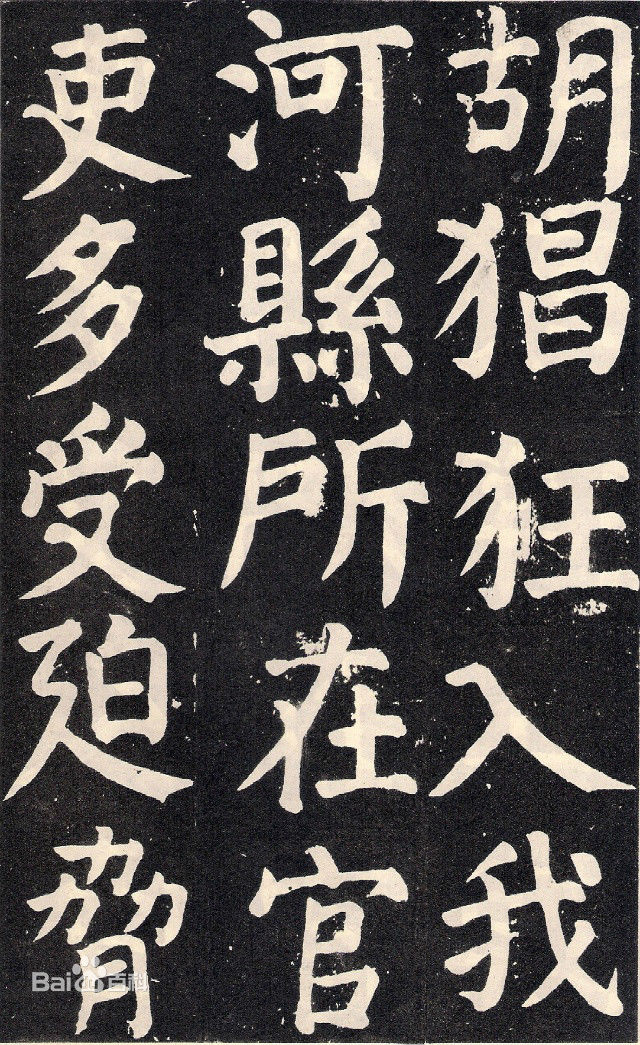 胡猖狂入我
河縣所在官
吏多受廹脅
Bai百科